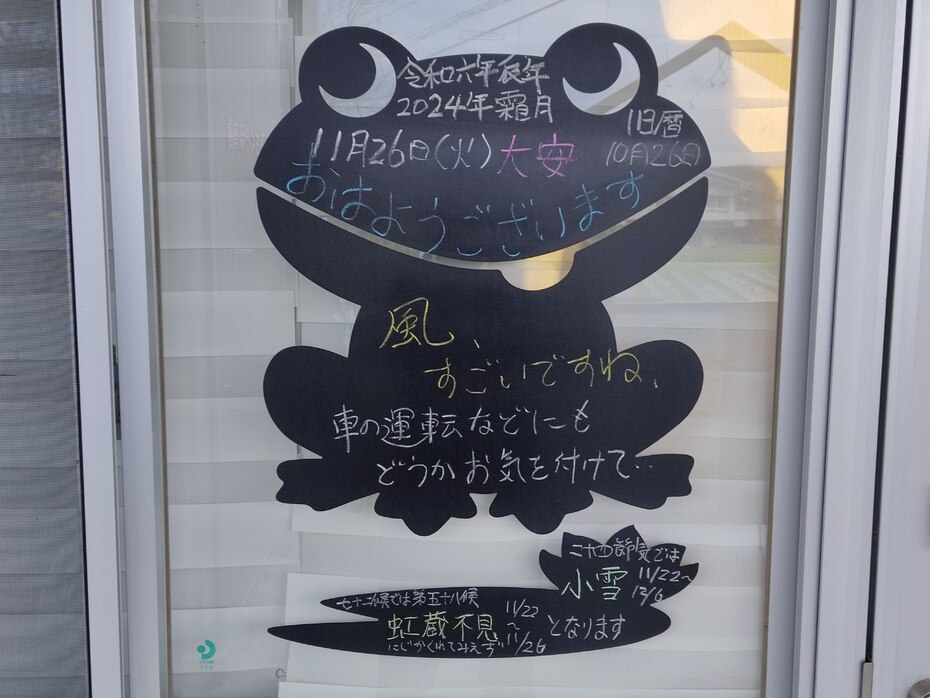 令和六年辰年
2024年霜月
11月26日(火)大安
旧暦
10月26日
おはようございます
風、
すごいですね、
車の運転などにも
どうかお気を付けて‥
二十四節気では
小雪 11/22～12/6
七十二候では第五十八候
虹蔵不見 11/22～11/26 となります
にじかくれてみえず